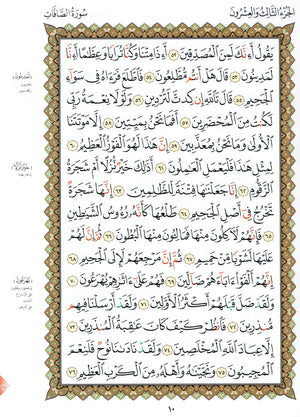 الجزء الثالث والعشرون
سورة الصافات
يَقُولُ أَءِنَّكَ لَمِنَ الْمُصَدِّقِينَ ٥٢ أَءِذَا مِتْنَا وَكُنَّا تُرَابًا وَعِظَامًا أَءِنَّا
لَمَدِينُونَ ٥٣ قَالَ هَلْ أَنتُم مُّطَّلِعُونَ ٥٤ فَاطَّلَعَ فَرَءَاهُ فِي سَوَاءِ
الْجَحِيمِ ٥٥ قَالَ تَاللَّهِ إِن كِدتَّ لَتُرْدِينِ ٥٦ وَلَوْلَا نِعْمَةُ رَبِّي
لَكُنتُ مِنَ الْمُحْضَرِينَ ٥٧ أَفَمَا نَحْنُ بِمَيِّتِينَ ٥٨ إِلَّا مَوْتَتَنَا
الْأُولَى وَمَا نَحْنُ بِمُعَذَّبِينَ ٥٩ إِنَّ هَٰذَا لَهُوَ الْفَوْزُ الْعَظِيمُ ٦٠
لِمِثْلِ هَٰذَا فَلْيَعْمَلِ الْعَامِلُونَ ٦١ أَذَٰلِكَ خَيْرٌ نُّزُلًا أَمْ شَجَرَةُ
الزَّقُّومِ ٦٢ إِنَّا جَعَلْنَاهَا فِتْنَةً لِّلظَّالِمِينَ ٦٣ إِنَّهَا شَجَرَةٌ
تَخْرُجُ فِي أَصْلِ الْجَحِيمِ ٦٤ طَلْعُهَا كَأَنَّهُ رُءُوسُ الشَّيَاطِينِ
٦٥ فَإِنَّهُمْ لَآكِلُونَ مِنْهَا فَمَالِئُونَ مِنْهَا الْبُطُونَ ٦٦ ثُمَّ إِنَّ لَهُمْ
عَلَيْهَا لَشَوْبًا مِّنْ حَمِيمٍ ٦٧ ثُمَّ إِنَّ مَرْجِعَهُمْ لَإِلَى الْجَحِيمِ ٦٨
إِنَّهُمْ أَلْفَوْا ءَابَاءَهُمْ ضَالِّينَ ٦٩ فَهُمْ عَلَىٰ ءَاثَارِهِمْ يُهْرَعُونَ ٧٠
وَلَقَدْ ضَلَّ قَبْلَهُمْ أَكْثَرُ الْأَوَّلِينَ ٧١ وَلَقَدْ أَرْسَلْنَا فِيهِم
مُّنذِرِينَ ٧٢ فَانظُرْ كَيْفَ كَانَ عَاقِبَةُ الْمُنذَرِينَ ٧٣
إِلَّا عِبَادَ اللَّهِ الْمُخْلَصِينَ ٧٤ وَلَقَدْ نَادَانَا نُوحٌ فَلَنِعْمَ
الْمُجِيبُونَ ٧٥ وَنَجَّيْنَاهُ وَأَهْلَهُ مِنَ الْكَرْبِ الْعَظِيمِ ٧٦
١٠